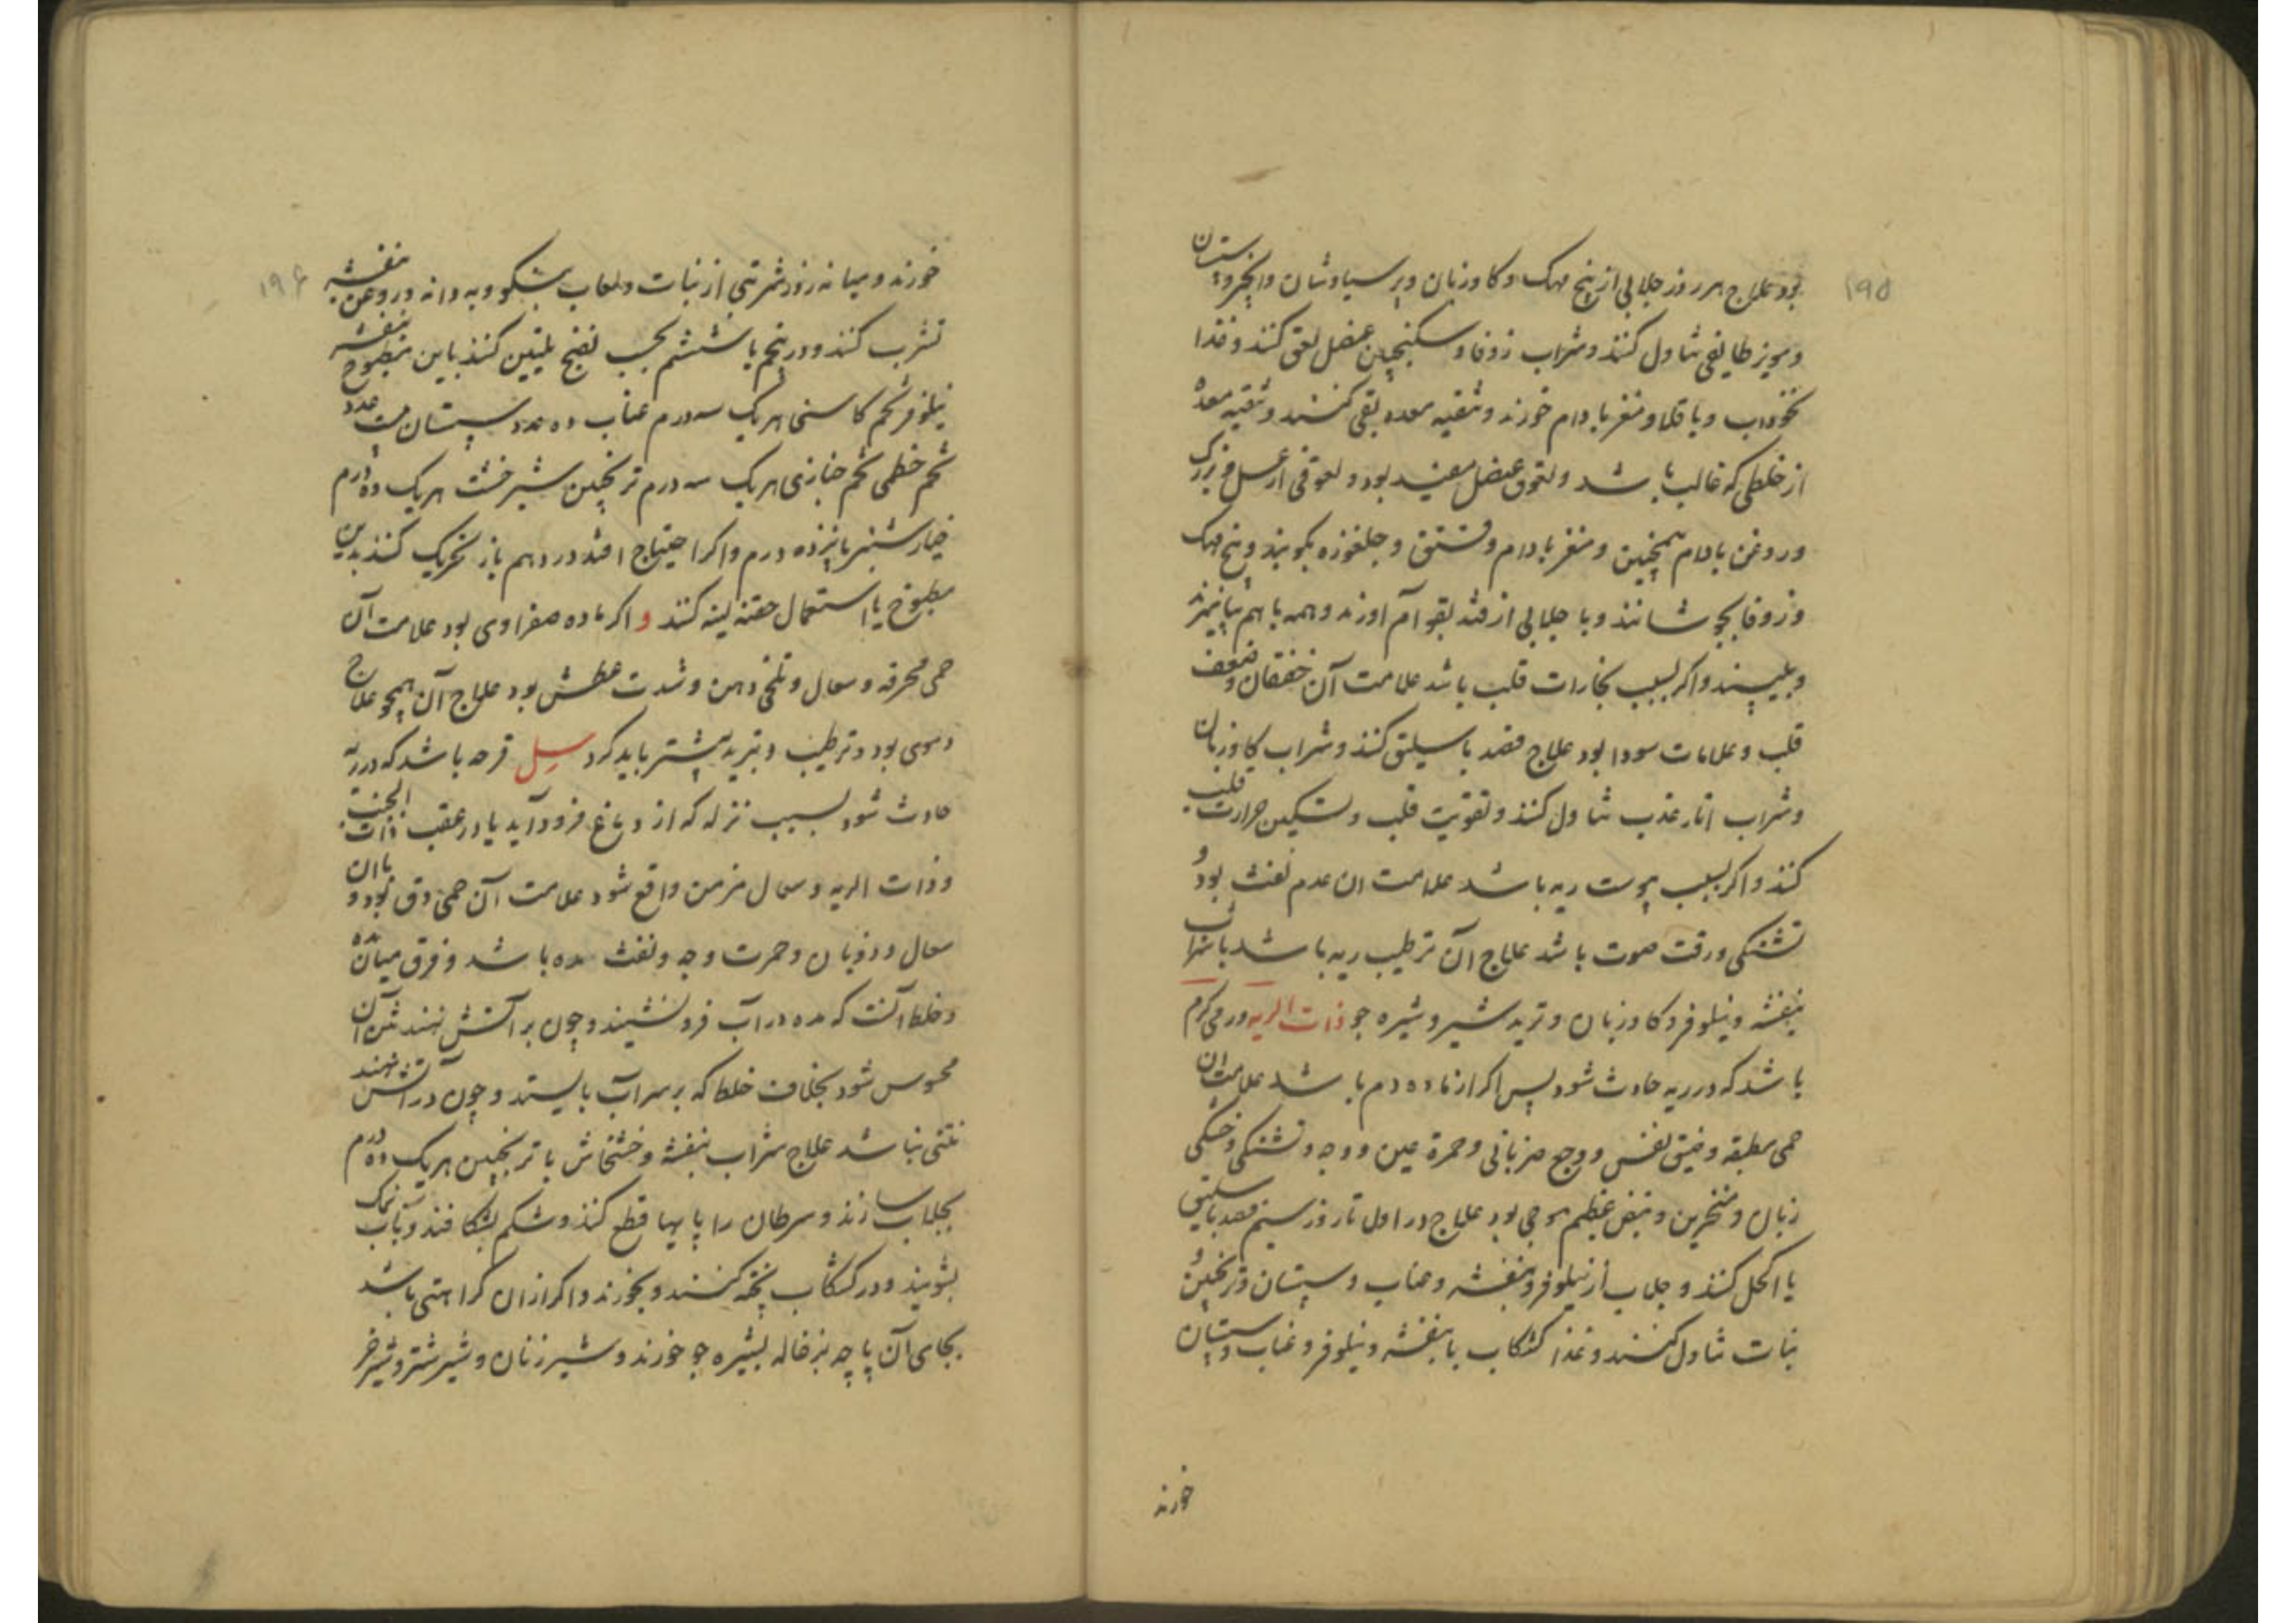 ۱۹۵
بود علاج هر روز جلابی از بیخ مهک و کاوزبان و پرسیاوشان و انجیر و سپستان
و مویز طایفی تناول کنند و شراب زوفا و سکنجبین عنصل لعق کنند و غذا
نخوداب و باقلا و مغز بادام خورند و تنقیه معده بقی کنند و تنقیه معده
از خلطی که غالب باشد و لعوق عنصل مفید بود و لعوقی از عسل و بزرک
و روغن بادام همچنین و مغز بادام و فستق و جلغوزه بکوبند و بیخ مهک
و زوفا بجوشانند و با جلابی از قند بقوام آورند و همه با هم بیامیزند
و بلیسند و اکر بسبب بخارات قلب باشد علامت آن خفقان و ضعف
قلب و علامات سودا بود علاج فصد باسلیق کنند و شراب کاوزبان
و شراب انار عذب تناول کنند و تقویت قلب و تسکین حرارت قلب
کنند و اکر بسبب یبوست ریه باشد علامت ان عدم نفث بود و
تشنکی و رقت صوت باشد علاج آن ترطیب ریه باشد بشراب
بنفشه و نیلوفر و کاوزبان و ترید شیر و شیره جو ذات الریه ورمی کرم
باشد که در ریه حادث شود پس اکر از ماده دم باشد علامت ان
حمی مطبقه و ضیق نفس و وجع ضربانی و حمرة عین و وجه و تشنکی و خشکی
زبان و منخرین و نبض عظیم موجی بود علاج در اول تا روز سیم فصد باسلیق
یا اکحل کنند و جلاب از نیلوفر و بنفشه و عناب و سپستان و ترنجبین و
نبات تناول کنند و غذا کشکاب با بنفشه و نیلوفر و عناب و سپستان
خورند
۱۹۶
خورند و میانه روز شربتی از نبات و لعاب بشکو و به دانه و روغن بنفشه
تشرب کنند و در پنجم یا ششم بحسب نضج تلیین کنند باین مطبوخ بنفشه
نیلوفر تخم کاسنی هریک سه درم عناب ده عدد سپستان بیست عدد
تخم خطمی تخم خبازی هریک سه درم ترنجبین شیرخشت هریک ده درم
خیارشنبر پانزده درم و اکر احتیاج افتد در دهم باز تحریک کنند بدین
مطبوخ یا استعمال حقنه لینه کنند و اکر ماده صفراوی بود علامت آن
حمی محرقه و سعال و تلخی دهن و شدت عطش بود علاج آن همچو علاج
دموی بود و ترطیب و تبرید بیشتر باید کرد سل قرحه باشد که در ریه
حادث شود بسبب نزله که از دماغ فرود آید یا در عقب ذات الجنب
و ذات الریه و سعال مزمن واقع شود علامت آن حمی دق بود و با ان
سعال و ذوبان و حمرت وجه و نفث مده باشد و فرق میان مده
و خلط آنست که مده در آب فرو نشیند و چون بر آتش نهند نتن آن
محسوس شود بخلاف خلط که بر سر آب بایستد و چون در آتش نهند
نتنی نباشد علاج شراب بنفشه و خشخاش با ترنجبین هریک ده درم
بجلاب سازند و سرطان را پایها قطع کنند و شکم بشکافند و بآب نمک
بشویند و در کشکاب پخته کنند و بخورند و اکر از ان کراهتی باشد
بجای آن پاچه بزغاله بشیره جو خورند و شیر زنان و شیر شتر و شیر خر